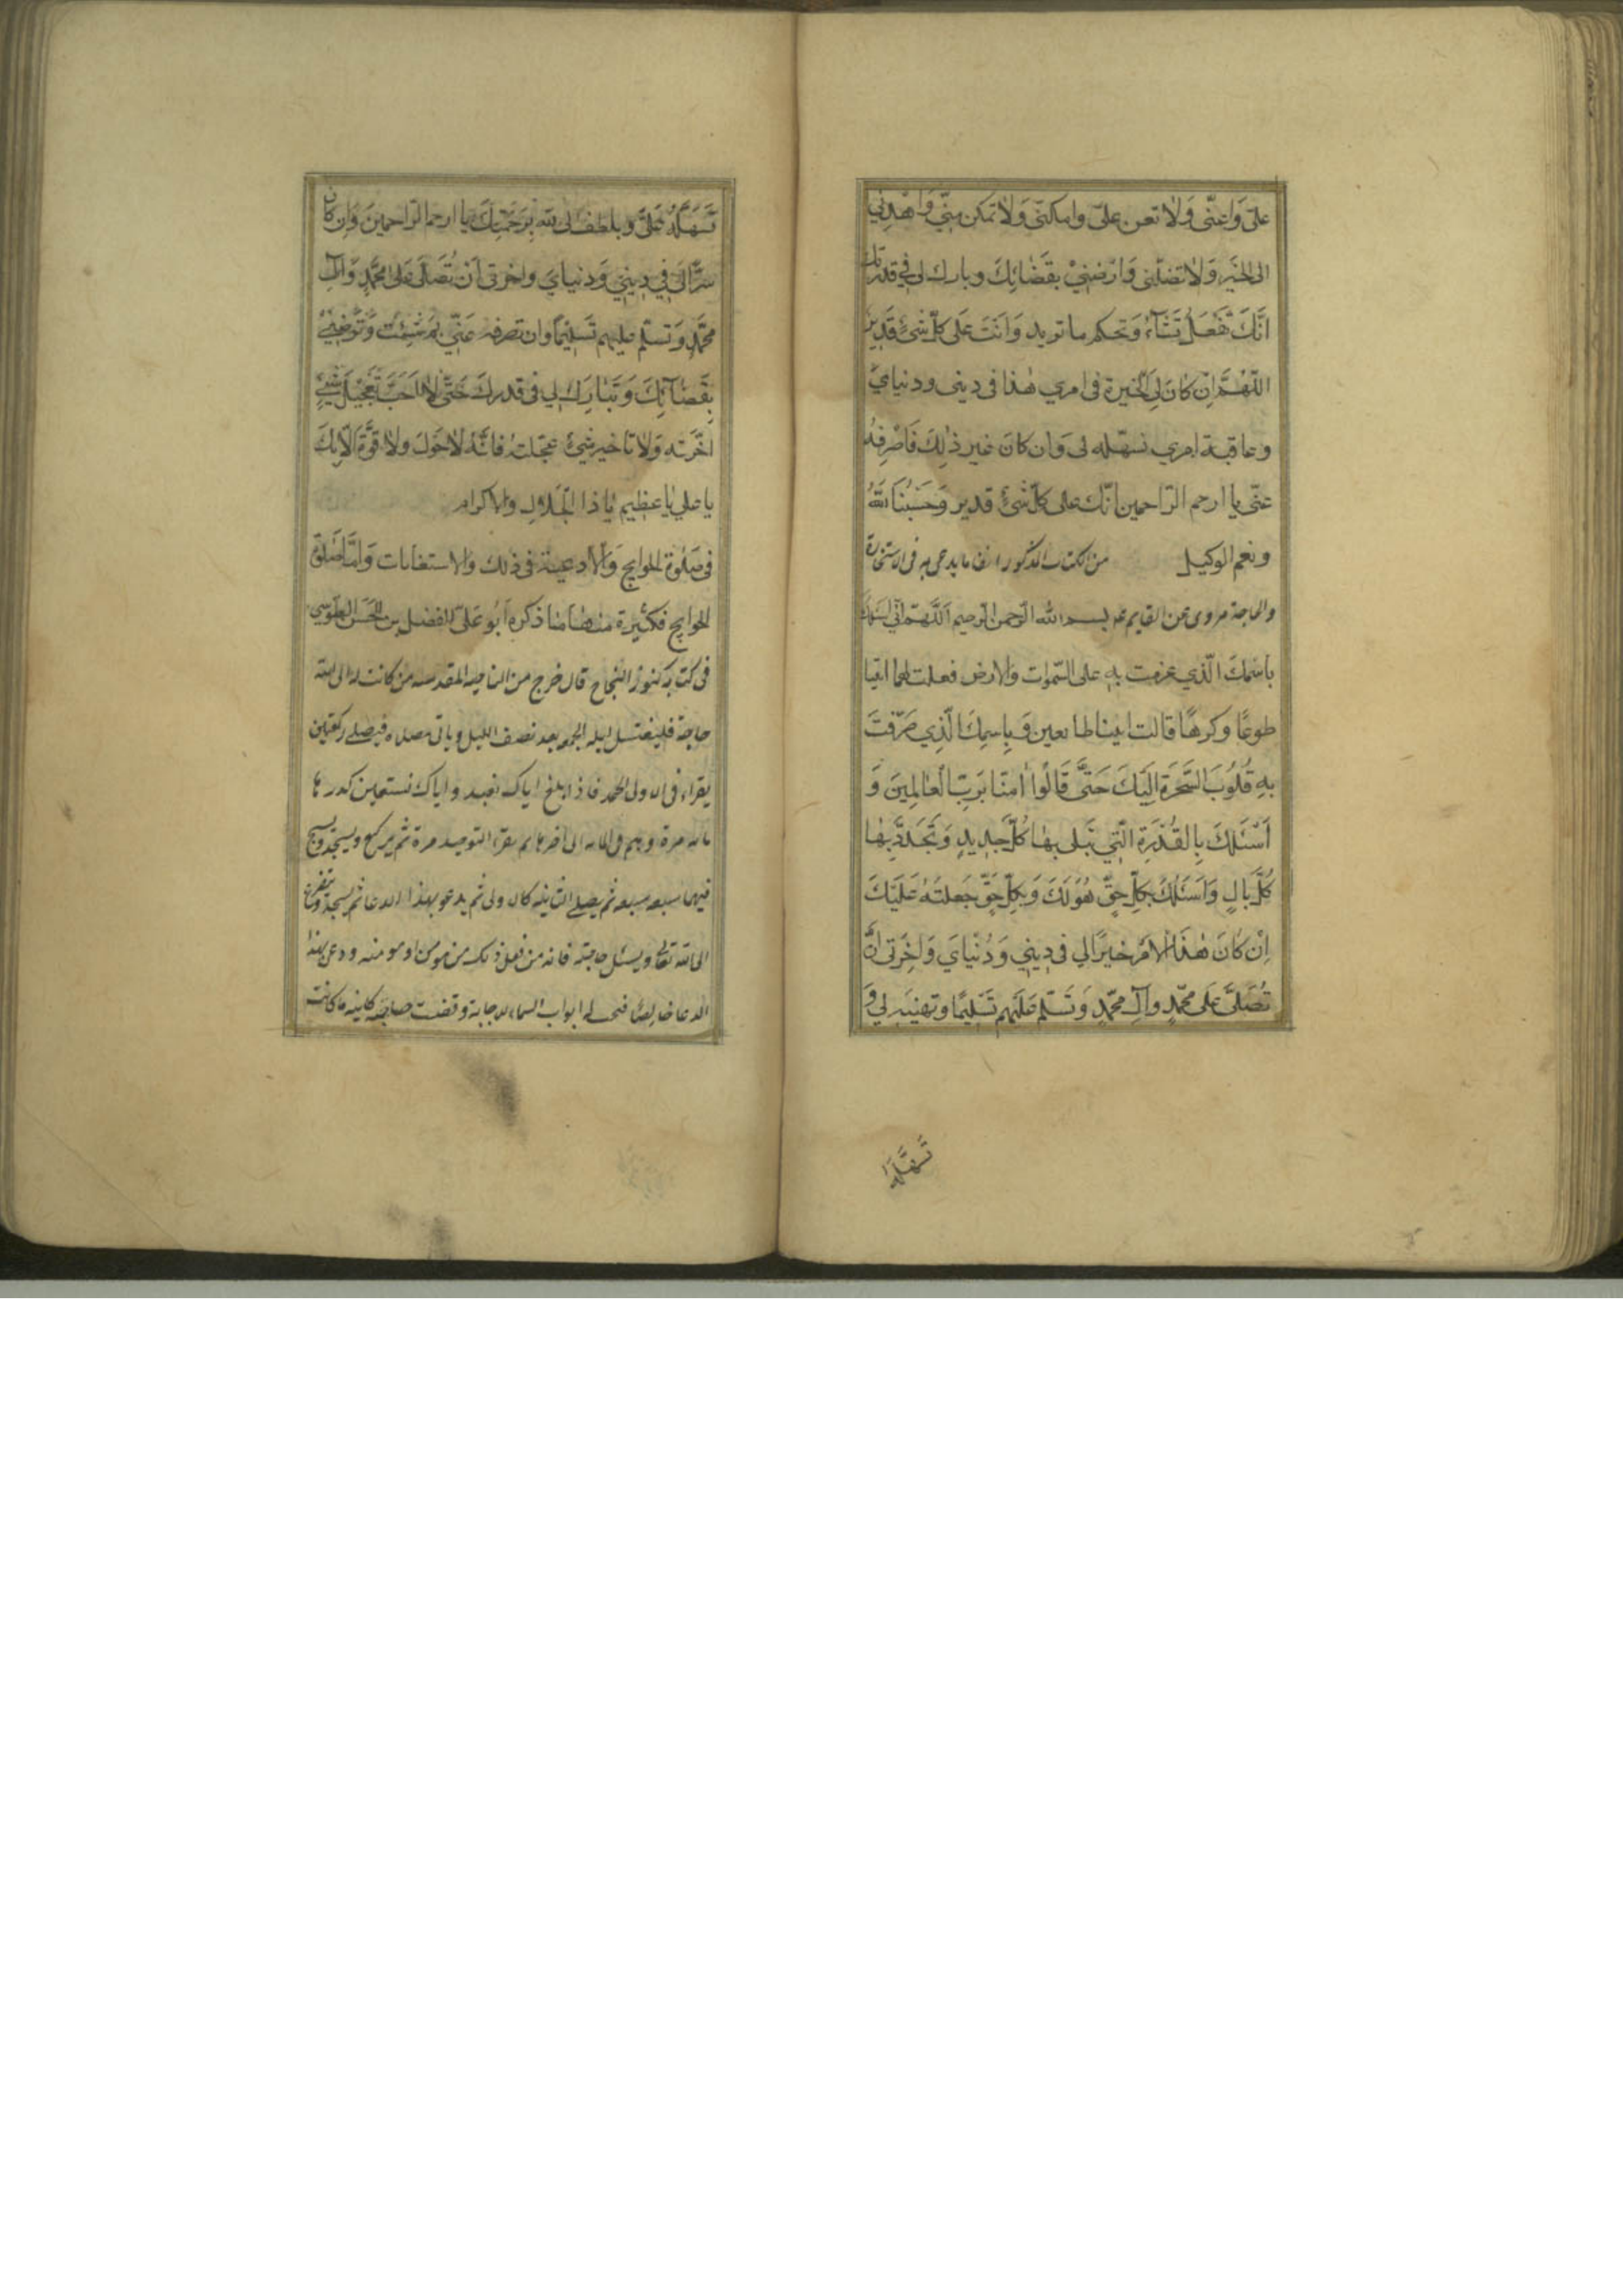 علىّ وَاَعنّى وَلاٰ تعن علىّ وامكنّى وَلاٰ تمكن مِنّى وَاهْدِنِي
الى الخَيْرِ وَلاٰ تضلّنى وَارْضِنِيْ بقَضٰائِكَ وبارك لى فِي قدرتك
انّكَ تَفْعَلُ تَشَآءُ وَتحكم ما تريد وَانَتَ عَلى كلّ شَئٍ قَدِيرٌ
اللّهُمَّ اِن كٰانَ لِيَ الخيرة فى امري هٰذا فى دينى ودنيايَ
وعاقبة امري نسهّله لى وَان كانَ غير ذٰلِكَ فَاصْرِفهُ
عنّى يا ارحم الرّاحمين انّك على كلّ شئٍ قدير وَحَسْبُنَا اللّهُ
ونعم الوكيل من الكتاب المذكور ايضا ما يدعى به فى الاستخارة
والحاجة مروى عن القايم عم بسم الله الرّحمن الرّحيم اَللّهُمّ انّى اسئلك
باسْمكَ الّذي عزمت بِهِ على السّموات وَالارض فعلت لهما ائتيا
طوعًا وكرهًا قالتا اتينا طائعين وَبِاسِمكَ الّذِي صَرّفتَ
بهِ قُلُوبَ السَّحَرَةِ اِلَيْكَ حَتىَّ قَالُوا اٰمنّا بَربّ العٰالمِينَ وَ
اَسْئَلكَ بِالقُدْرَةِ الّتِي تبلى بهٰا كُلّ جَدِيدٍ وَتَجدّد بِهٰا
كُلَّ بالٍ وَاَسَئَلُكَ بِكلِّ حقٍّ هُوَ لَكَ وَبِكلّ حَقٍّ جَعلتَهُ عَلَيْكَ
اِنْ كٰانَ هٰذَا الاَمْرُ خيرًا لي فى دِينِي وَدُنْيايَ وَاخِرَتى اَنْ
تُصَلىَّ عَلَى محمّدٍ وآلِ محمّدٍ وَتَسَلّم عَلَيْهم تَسْليمًا وتهنيَه لي وَ
تَسَهّلَهُ
تَسَهّلَهُ عَلَىَّ وبلطف لى فيه بِرَحْمَتِكَ يا ارحم الرّاحمينَ وَاِن كانَ
شرًّا لِى فِي دِينِي وَدنيايَ واخرتى اَنْ تُصَلّىَ عَلى محَمَّدٍ وَآلِ
محمّدٍ وَتسلّم عليهم تَسْليمًا وان تصرفه عَنّي بِمَ شئت وَتُرضيني
بِقَضٰآئِكَ وَتَبَارِكَ لِي فى قدرِكَ حَتّى لاٰ اُحبَّ تَعْجيلَ شيءٍ
اخّرَته وَلاٰ تاخير شئٍ عجّلتهُ فانّهُ لاٰ حَولَ ولاٰ قوّةَ اِلّا بِكَ
يا علي يٰا عظيم يٰا ذا الجَلالِ والاكرام
فى صَلٰوة الحوايج وَالأدعية فى ذلك والاستغاثات وَامّا صَلٰوة
الحوايج فكثيرة منها ما ذكره اَبُو عَلىّ الفضل بن الحَسَن الطوسِي
فى كتابه كنوز النّجاح قال خرج من الناحية المقدسه من كانت له الى الله
حاجة فليغتسل ليله الجمعه بعد نصف الليل وياتى مصلاه فيصلى ركعتين
يقراء فى الاولى الحمد فاذا بلغ اياك نعبد واياك نستعين كررها
مائه مرة ويتم فى المائه الى اخرها ثم يقراء التوحيد مرة ثم يركع ويسجد ويسبح
فيهما سبعه سبعه ثم يصلى الثانيه كالاولى ثم يدعو بهذا الدعا ثم يسجد ويتضرع
الى الله تعالى ويسئل حاجته فانه من فعل ذلك من مومن او مومنه ودعى بهذا
الدعا خالصًا فتحت له ابواب السماء للاجابة وقضيت حاجته كاينه ما كانت